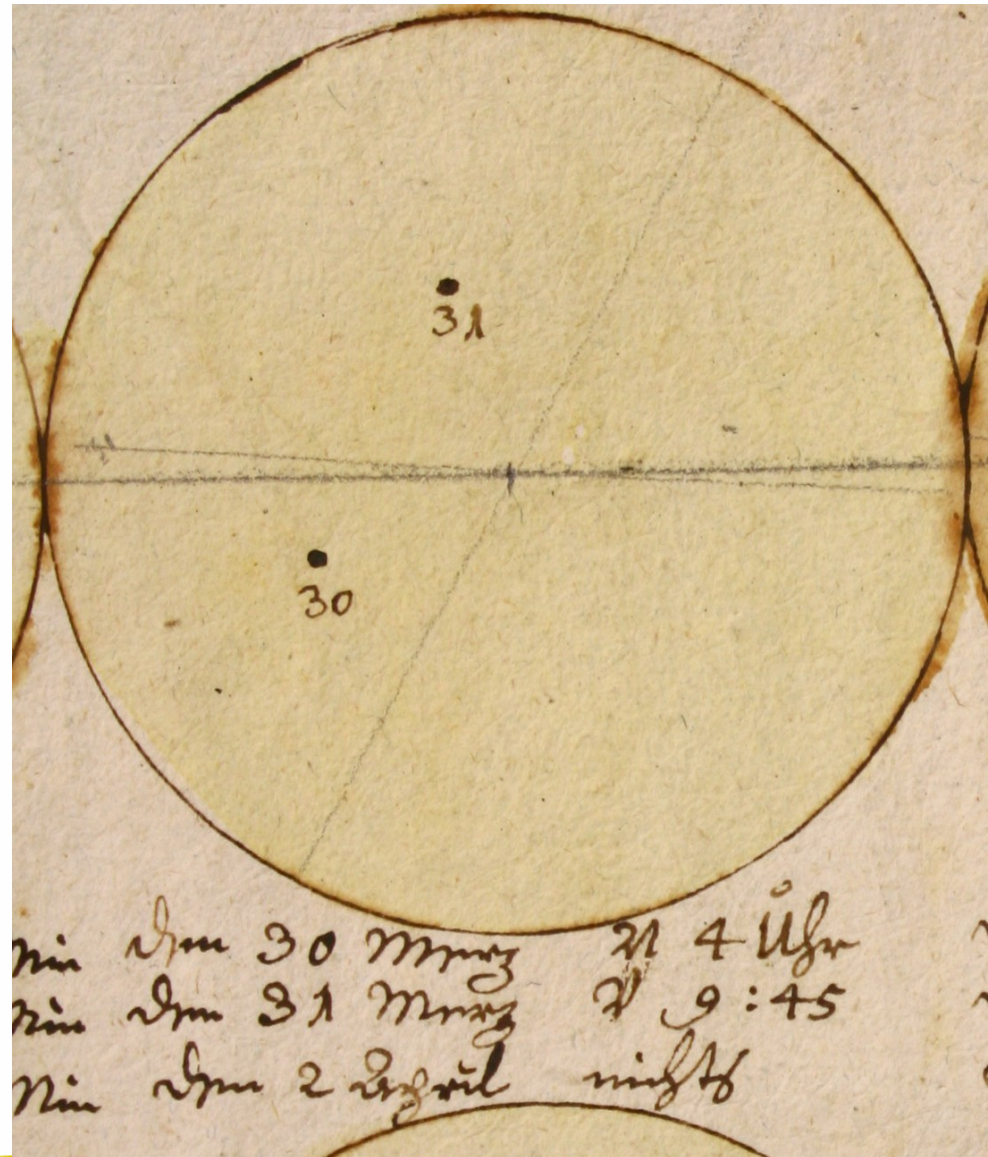 31
30
den 30 Merz N 4 Uhr
den 31 Merz V 9:45
den 2 April nichts